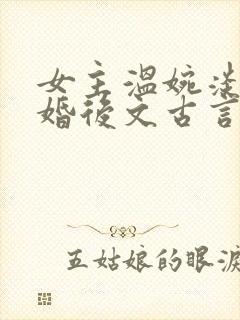 女主温婉淡
婚後文古言
五姑娘的眼淚